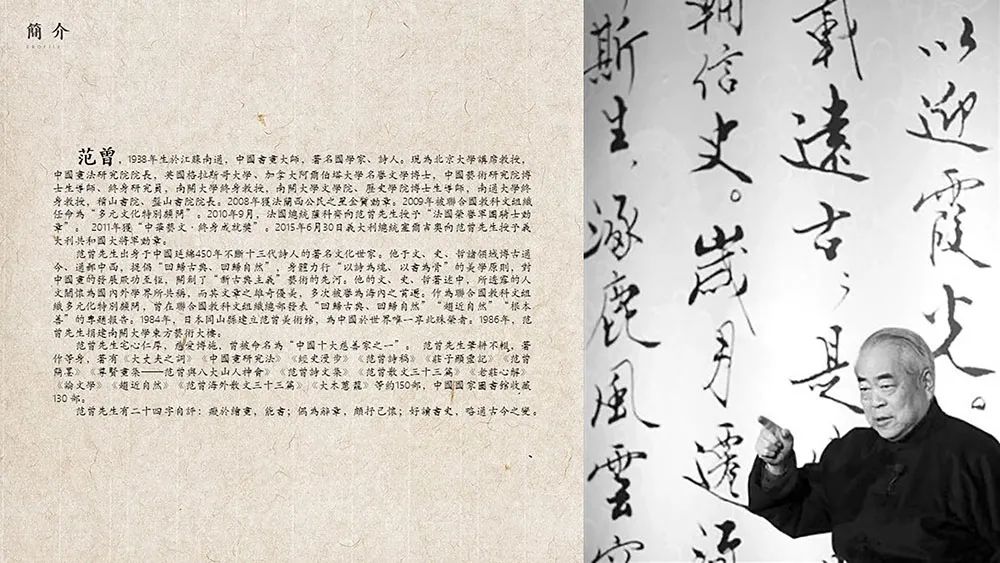 簡介
PROFILE
范曾，1938年生於江蘇南通，中國書畫大師，著名國學家、詩人。現為北京大學講席教授，
中國畫法研究院院長，英國格拉斯哥大學、加拿大阿爾伯塔大學名譽文學博士，中國藝術研究院博
士生導師、終身研究員，南開大學終身教授，南開大學文學院、歷史學院博士生導師，南通大學終
身教授，稽山書院、盤山書院院長。2008年獲法蘭西公民之星金質勛章。2009年被聯合國教科文組織
任命為“多元文化特別顧問”。2010年9月，法國總統薩科齊向范曾先生授予“法國榮譽軍團騎士勛
章”。 2011年獲“中華藝文·終身成就獎”。2015年6月30日義大利總統塞爾吉奧向范曾先生授予義
大利共和國大將軍勛章。
范曾先生出身于中國延綿450年不斷十三代詩人的著名文化世家。他于文、史、哲諸領域博古通
今、通邮中西，提倡“回歸古典、回歸自然”，身體力行“以詩為魂、以書為骨”的美學原則，對
中國畫的發展厥功至鉅，開創了“新古典主義”藝術的先河。他的文、史、哲著述中，所透露的人
文關懷為國內外學界所共稱，而其文章之雄奇優美，多次被譽為海內之首選。作為聯合國教科文組
織多元化特別顧問，曾在聯合國教科文組織總部發表“回歸古典、回歸自然”“趨近自然”“根本
善”的專題報告。1984年，日本岡山縣建立范曾美術館，為中國於世界唯一享此殊榮者。1986年，范
曾先生捐建南開大學東方藝術大樓。
范曾先生宅心仁厚，慈愛博施，曾被命名為“中國十大慈善家之一”。 范曾先生筆耕不輟，著
作等身，著有《大丈夫之詞》《中國畫研究法》《經史漫步》《范曾詩稿》《莊子顯靈記》《范曾
簡墨》《尊賢畫集——范曾與八大山人神會》《范曾詩文集》《范曾散文三十三篇》《老莊心解》
《論文學》《趨近自然》《范曾海外散文三十三篇》《大木蔥蘢》等約150部，中國國家圖書館收藏
130 部。
范曾先生有二十四字自評：癡於繪畫，能書；偶為辭章，頗抒己懷；好讀書史，略通古今之變。
以迎霞光。
載遠古々是
信史。歲月遷
斯生，涿鹿風雲